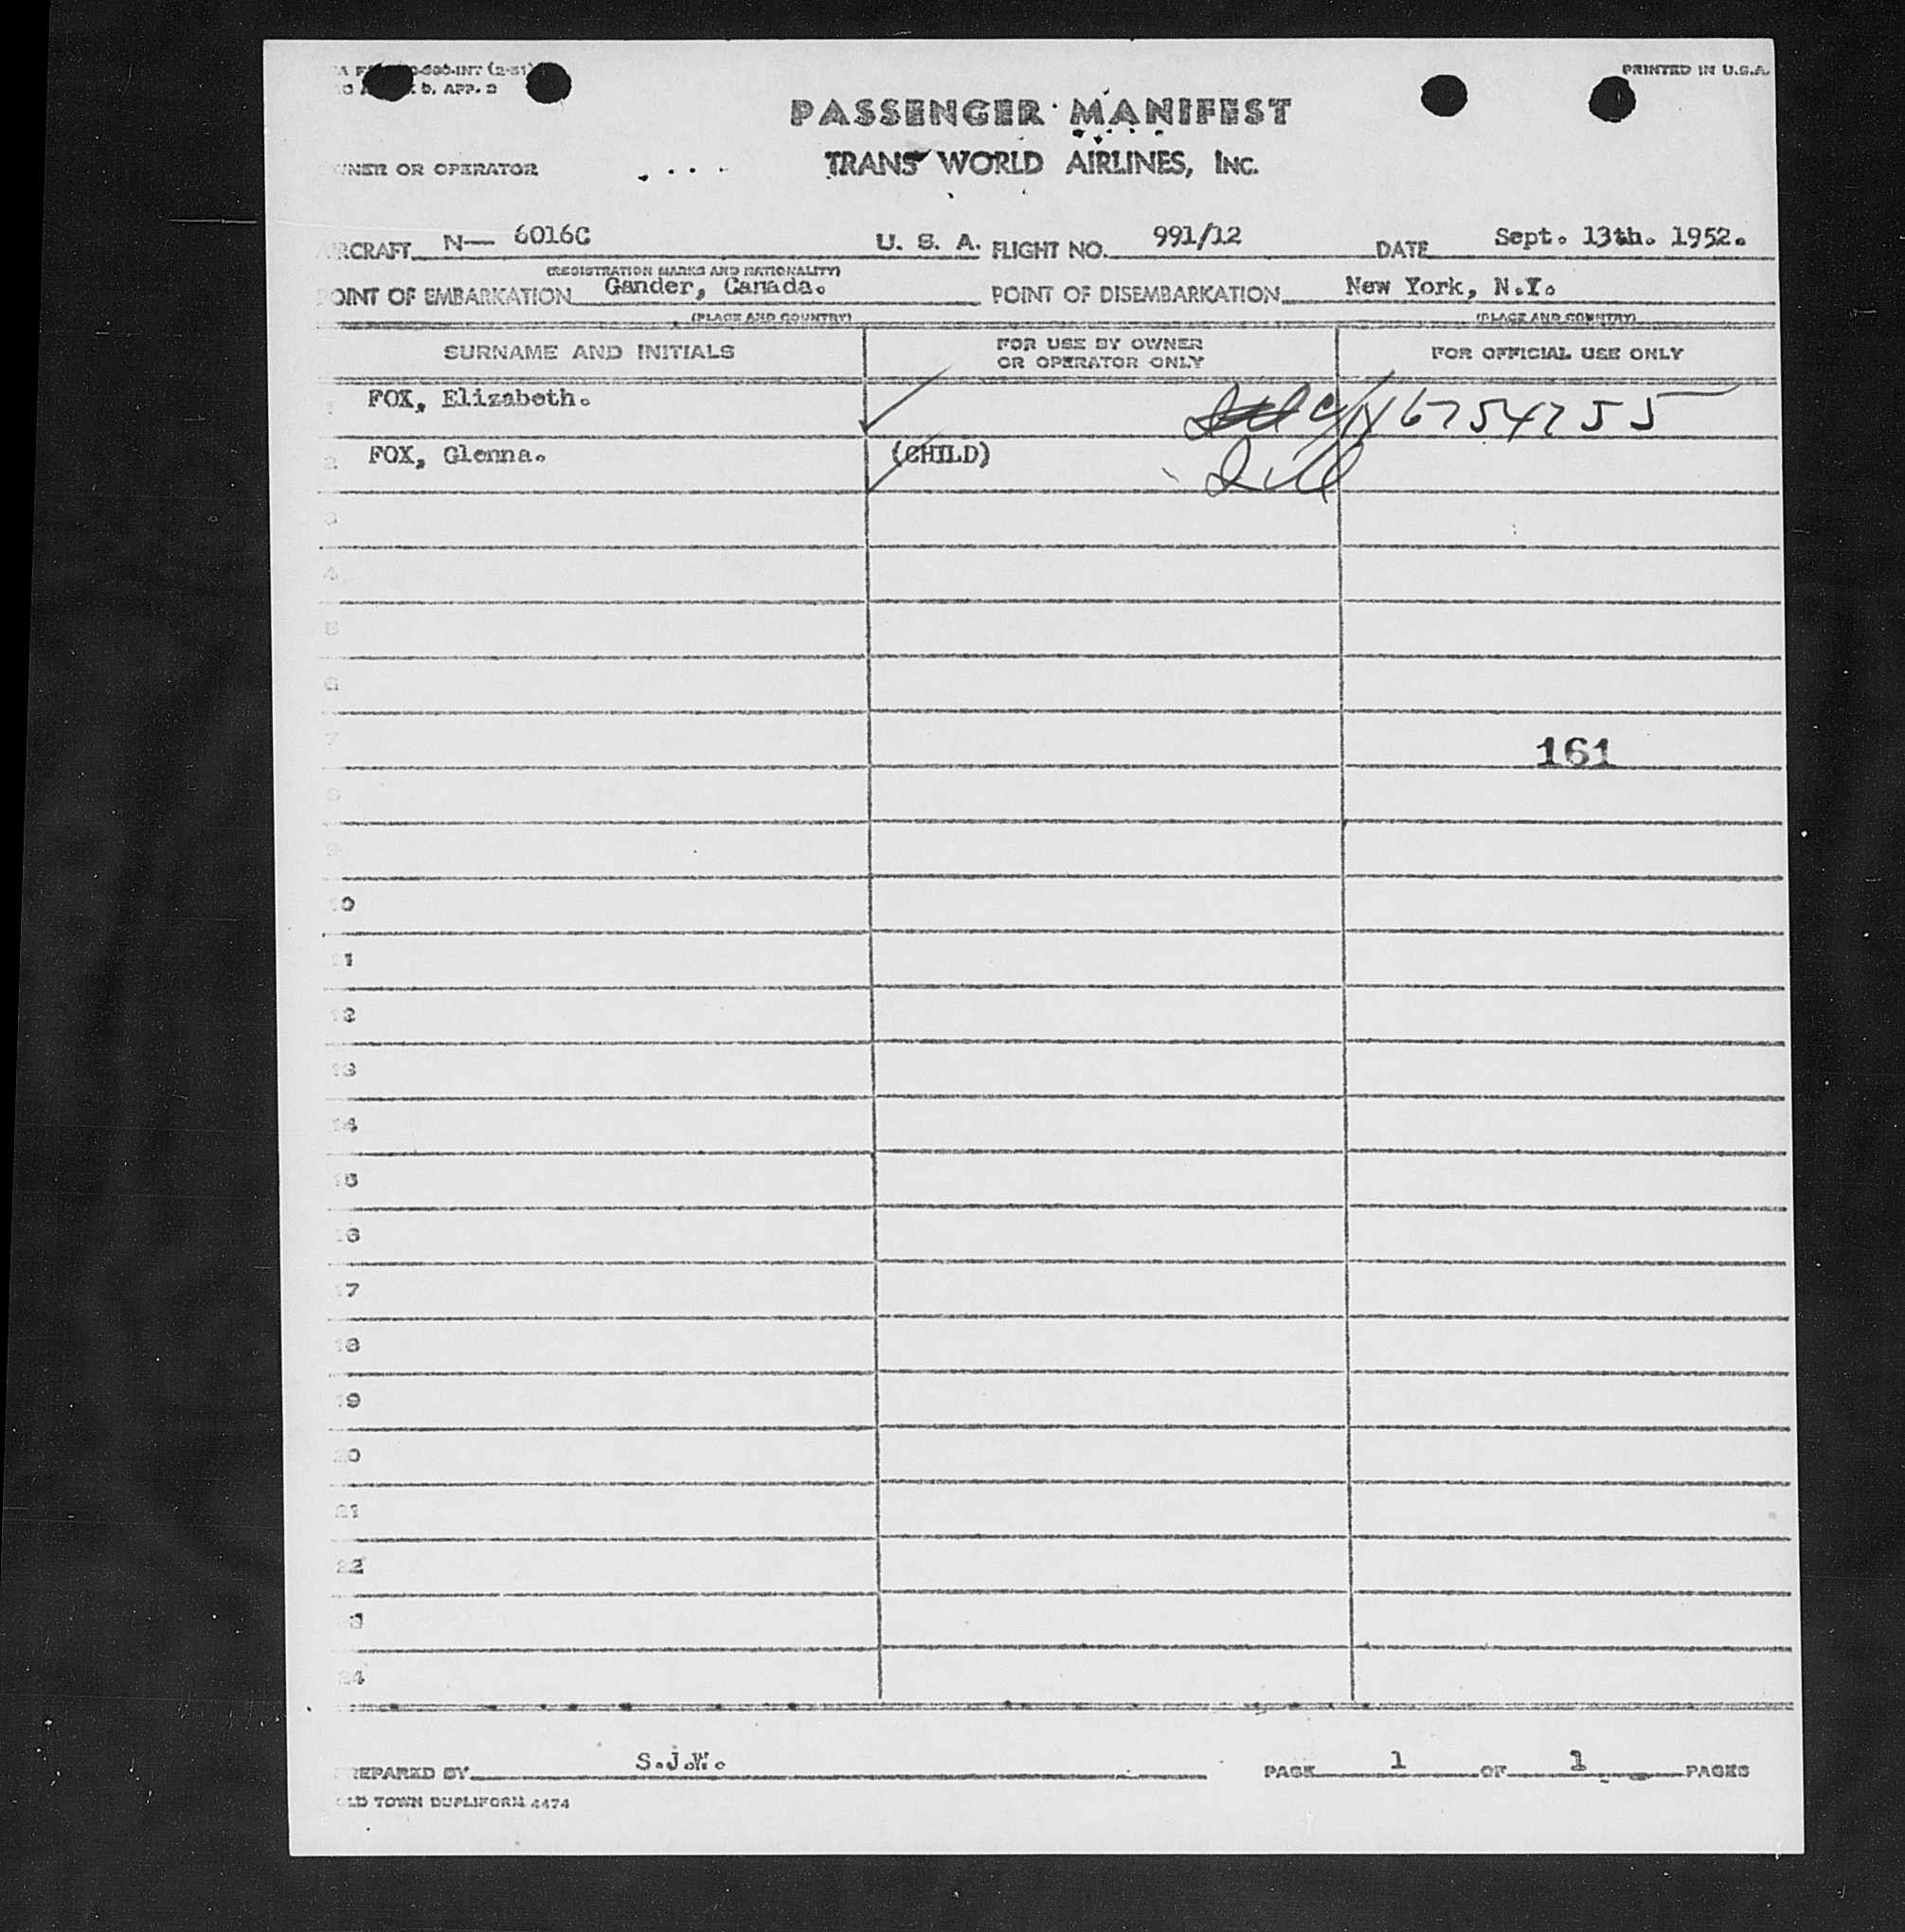 -INT (2-51)
APP. 2
PRINTED IN U.S.A.
PASSENGER MANIFEST
OWNER OR OPERATOR TRANS WORLD AIRLINES, INC.
AIRCRAFT N— 6016C U. S. A. FLIGHT NO. 991/12 DATE Sept. 13th. 1952.
(REGISTRATION MARKS AND NATIONALITY)
POINT OF EMBARKATION Gander, Canada. POINT OF DISEMBARKATION New York, N.Y.
(PLACE AND COUNTRY) (PLACE AND COUNTRY)
SURNAME AND INITIALS FOR USE BY OWNER OR OPERATOR ONLY FOR OFFICIAL USE ONLY
1 FOX, Elizabeth. 6754755
2 FOX, Glenna. (CHILD)
3
4
5
6
7 161
8
9
10
11
12
13
14
15
16
17
18
19
20
21
22
3
24
PREPARED BY S.J.W. PAGE 1 OF 1 PAGES
OLD TOWN DUPLIFORM 4474